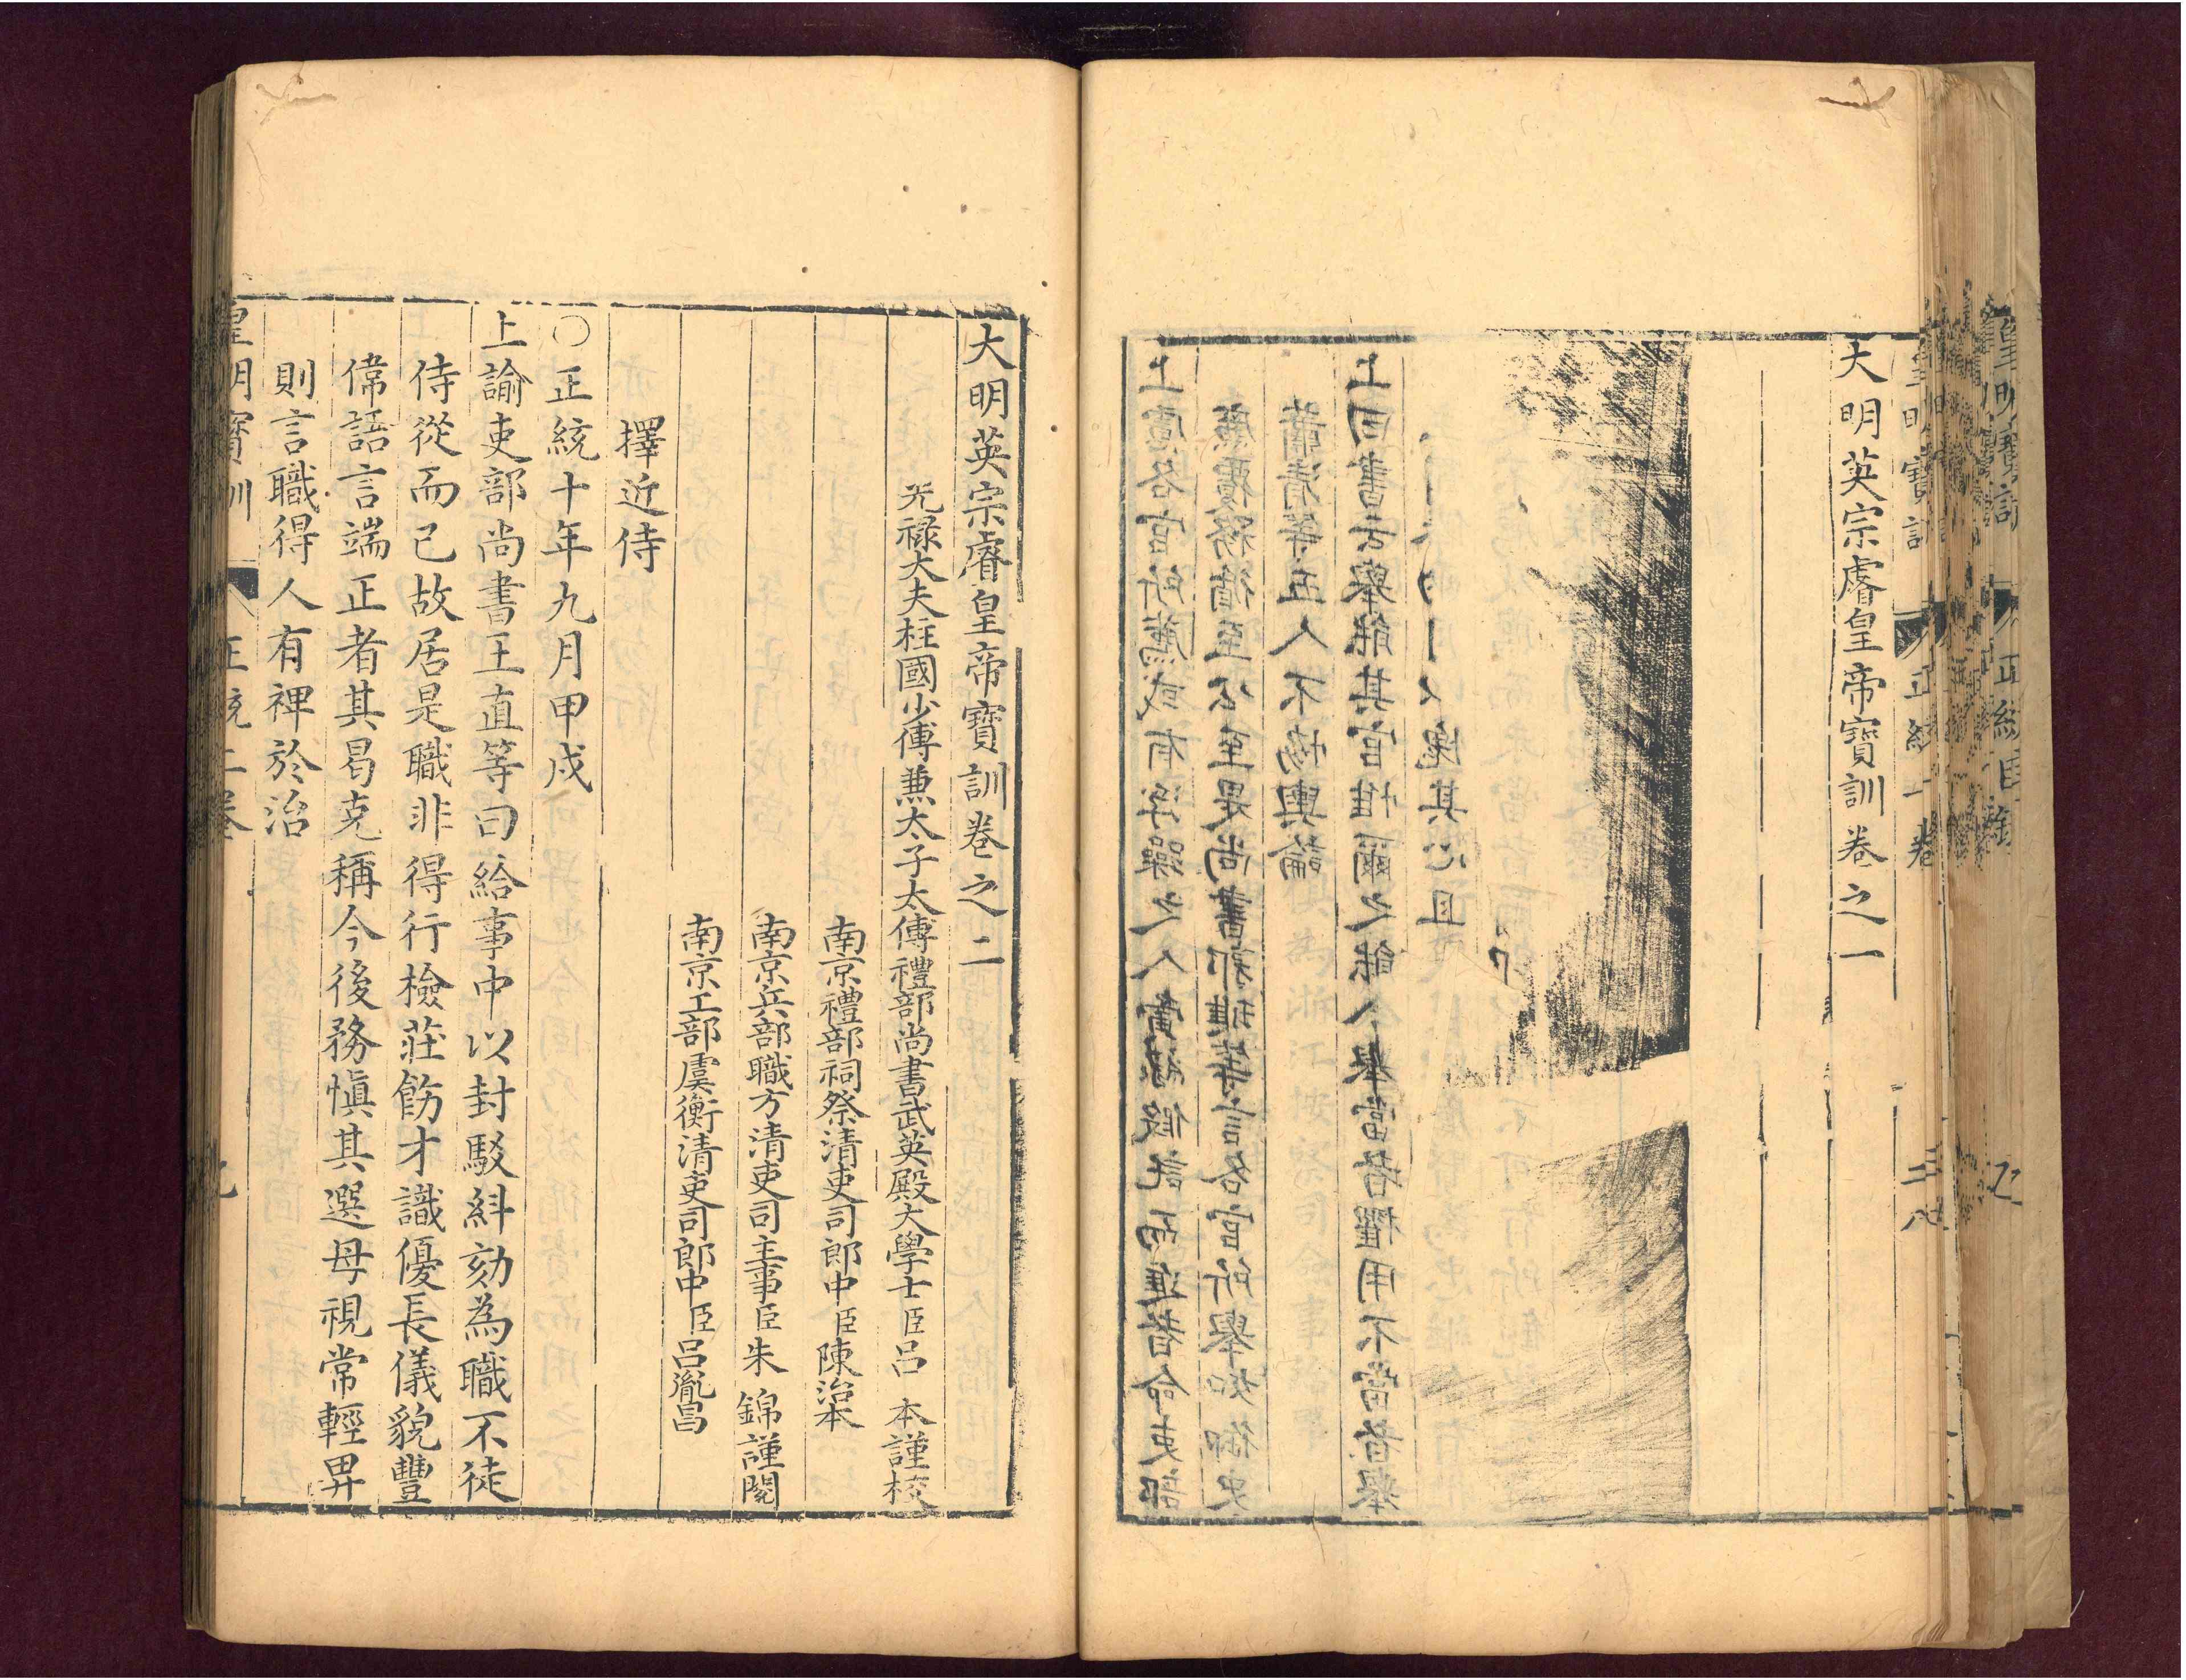 皇明寶訓 正統目錄
大明英宗睿皇帝寶訓卷之一
上慮各官所薦或有浮躁之人夤緣假託而進者命吏部
廉覈務循至公至是尚書郭璡等言各官所舉如御史
蕭清等五人不協輿論
上曰書云舉能其官惟爾之能人舉當者擢用不當者舉
愧其心且
大明英宗睿皇帝寶訓卷之二
光祿大夫柱國少傅兼太子太傅禮部尚書武英殿大學士臣呂 本謹校
南京禮部祠祭清吏司郎中臣陳治本
南京兵部職方清吏司主事臣朱 錦謹閱
南京工部虞衡清吏司郎中臣呂胤昌
擇近侍
○正統十年九月甲戌
上諭吏部尚書王直等曰給事中以封駁糾劾為職不徒
侍從而已故居是職非得行檢莊飭才識優長儀貌豐
偉語言端正者其曷克稱今後務慎其選毋視常輕畀
則言職得人有裨於治
皇明寶訓 正統二卷